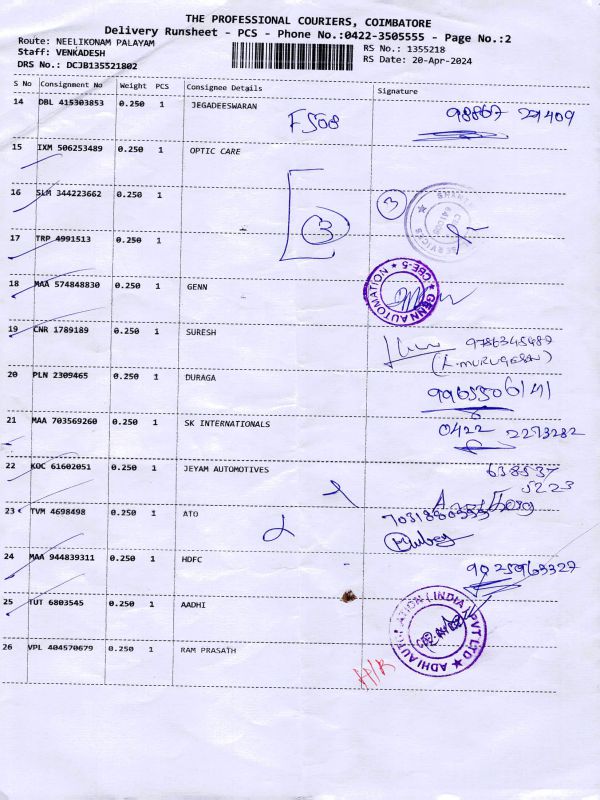 THE PROFESSIONAL COURIERS, COIMBATORE
Delivery Runsheet - PCS - Phone No.:0422-3505555 - Page No.:2
Route: NEELIKONAM PALAYAM
RS No.: 1355218
Staff: VENKADESH
RS Date: 20-Apr-2024
DRS No.: DCJB135521802
S No Consignment No Weight PCS Consignee Details Signature
14 DBL 415303853 0.250 1 JEGADEESWARAN
15 IXM 506253489 0.250 1 OPTIC CARE
16 SLM 344223662 0.250 1
3 3
17 TRP 4991513 0.250 1
18 MAA 574848830 0.250 1 GENN
GENN AUTOMATION ★ CBE-5 ★
19 CNR 1789189 0.250 1 SURESH
(K. MURUGESAN)
20 PLN 2309465 0.250 1 DURAGA
21 MAA 703569260 0.250 1 SK INTERNATIONALS 0422 2273282
22 KOC 61602051 0.250 1 JEYAM AUTOMOTIVES
638537
5223
23 TVM 4698498 0.250 1 ATO
24 MAA 944839311 0.250 1 HDFC 9025963327
25 TUT 6803545 0.250 1 AADHI
26 VPL 404570679 0.250 1 RAM PRASATH